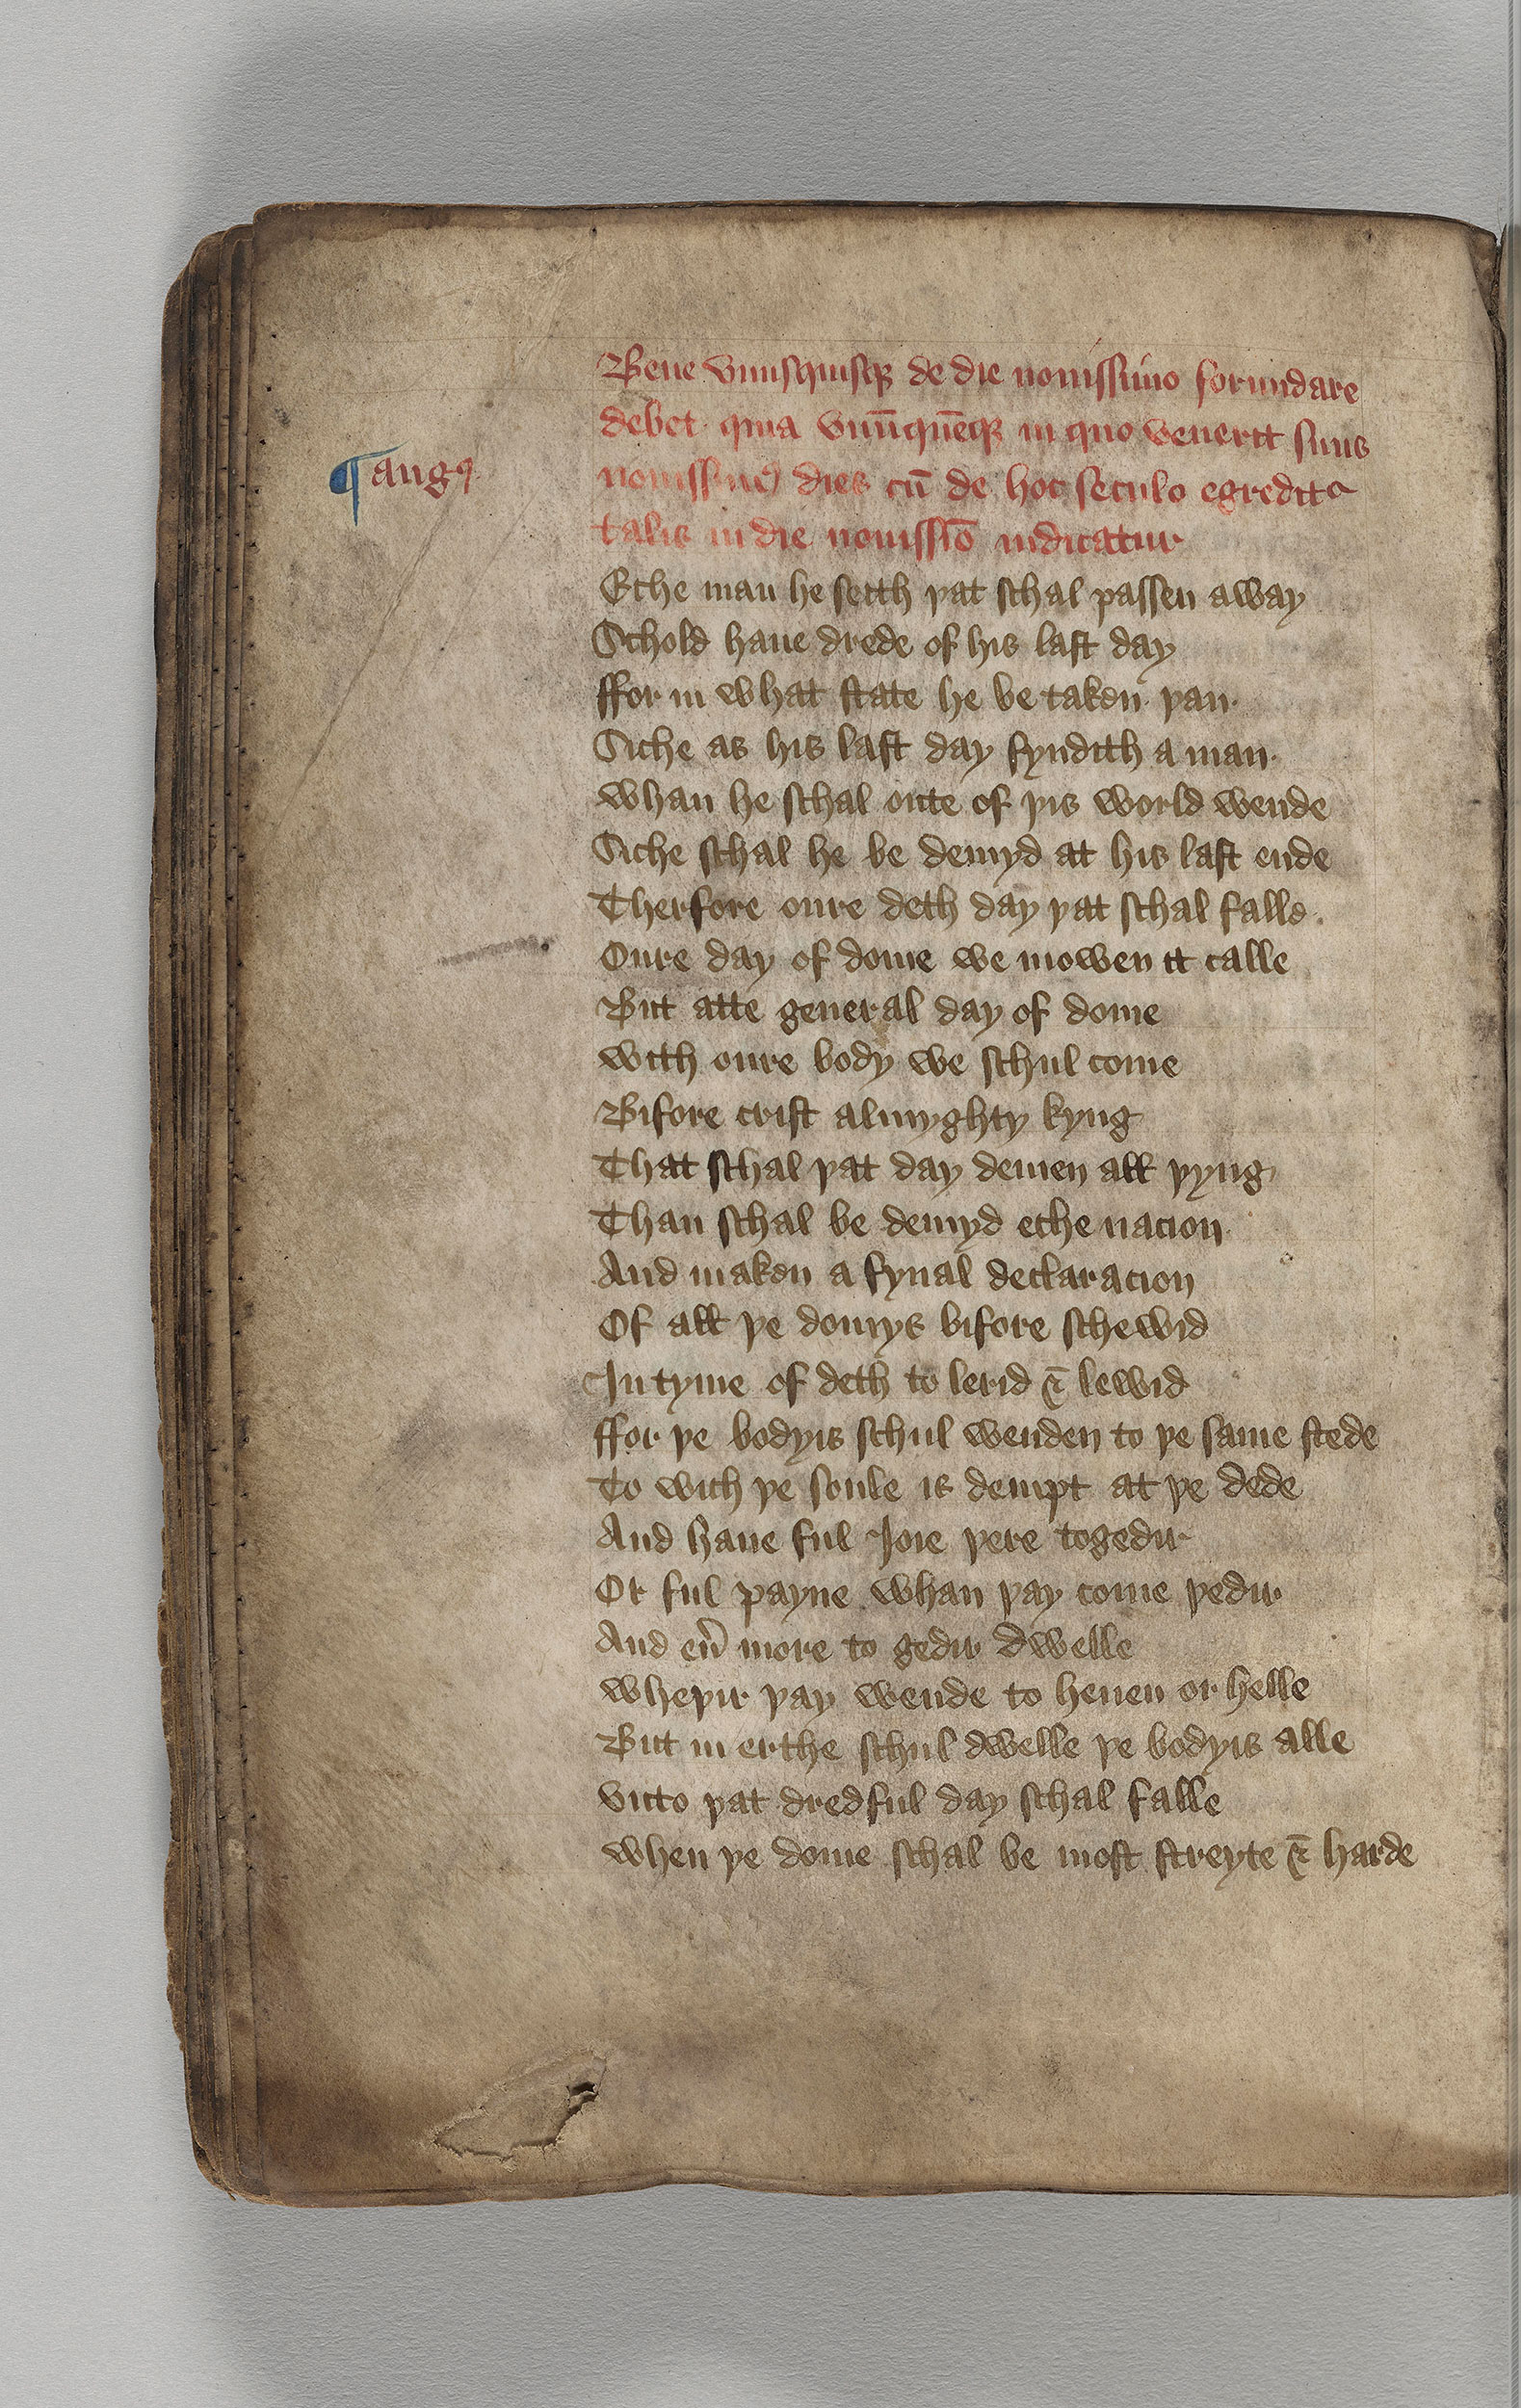 Bene vnusquisqꝫ de die nouissimo formidare
debet · quia vnūquēqꝫ in quo venerit suus
¶ augꝰ
nouissimꝰ dies cū de hoc seculo egredit᷑
talis in die nouissīo iudicatur
Eche man he seith þat schal passen away
Schold haue drede of his last day
ffor in what state he be taken þan ·
Siche as his last day fyndith a man ·
whan he schal oute of þis world wende
Siche schal he be demyd at his last ende
Therfore oure deth day þat schal falle ·
Oure day of dome we mowen it calle
But atte general day of dome
with oure body we schul come
Bifore crist almyghty kyng
That schal þat day demen all þyng
Than schal be demyd eche nacion ·
And maken a fynal declaracion
Of all þe domys bifore schewid
In tyme of deth to lerid ⁊ lewid
ffor þe bodyis schul wenden to þe same stede
To wich þe soule is dempt at þe dede
And haue ful Joie þere togedir
Or ful payne whan þay come þedir
And eu̾ more to gedir dwelle
wheþir þay wende to heuen or helle
But in erthe schul dwelle þe bodyis alle
vnto þat dredful day schal falle
when þe dome schal be most streyte ⁊ harde